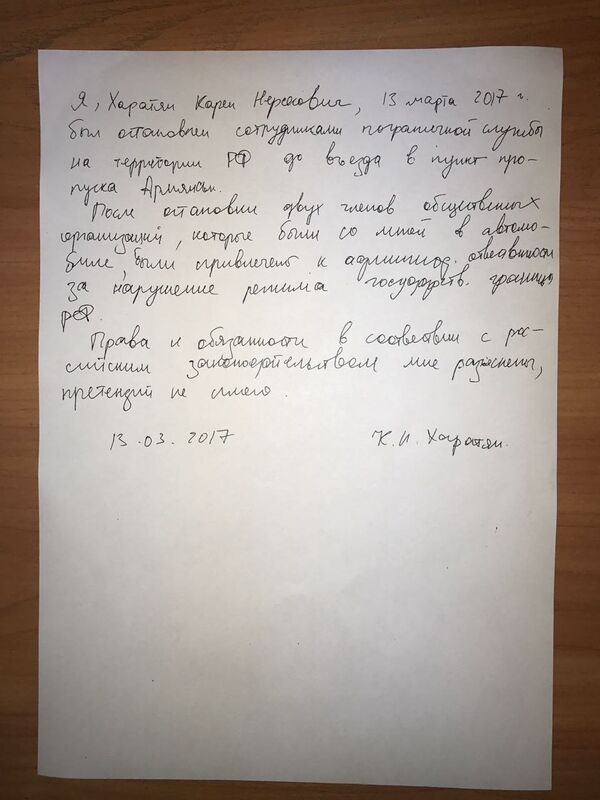 Я, Харатян Карен Нерсесович, 13 марта 2017 г.
был остановлен сотрудниками пограничной службы
на территории РФ до въезда в пункт про-
пуска Армянск.
После остановки двух членов общественных
организаций, которые были со мной в автомо-
биле, были привлечены к админист. ответвенности
за нарушение режима государств. границы
РФ.
Права и обязанности в соотвествии с рос-
сийским законодательством мне разяснены,
претензий не имею.
13.03.2017 К.Н. Харатян.